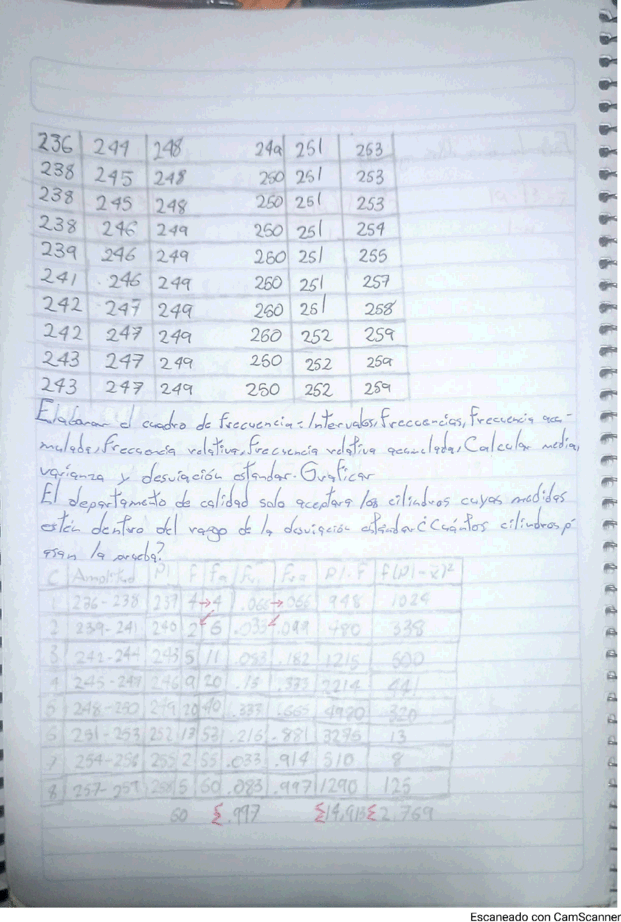 236 244 248 249 251 253
238 245 248 250 251 253
238 245 248 250 251 253
238 246 249 250 251 254
239 246 249 250 251 255
241 246 249 250 251 257
242 247 249 250 251 258
242 247 249 250 252 259
243 247 249 250 252 259
243 247 249 250 252 259
Elaborar el cuadro de frecuencia: Intervalos, Frecuencias, frecuencia acu-
mulada, Frecuencia relativa, Frecuencia relativa acumulada, Calcular media,
varianza y desviación estandar. Graficar
El departamento de calidad solo aceptara los cilindros cuyas medidas
estén dentro del rango de la desviación estándar ¿Cuántos cilindros p
asan la prueba?
C Amplitud PM F Fa Fr Fra PM·F
1 236-238 237 4→4 .066→.066 948 1024
2 239-241 240 2 6 .033 .099 480 338
3 242-244 243 5 11 .083 .182 1215 500
4 245-247 246 9 20 .15 .333 2214 441
5 248-250 249 20 40 .333 .665 4980 320
6 251-253 252 13 53 .216 .881 3276 13
7 254-256 255 2 55 .033 .914 510 8
8 257-259 258 5 60 .083 .997 1290 125
60 Σ.997 Σ14,913 Σ2,769
Escaneado con CamScanner